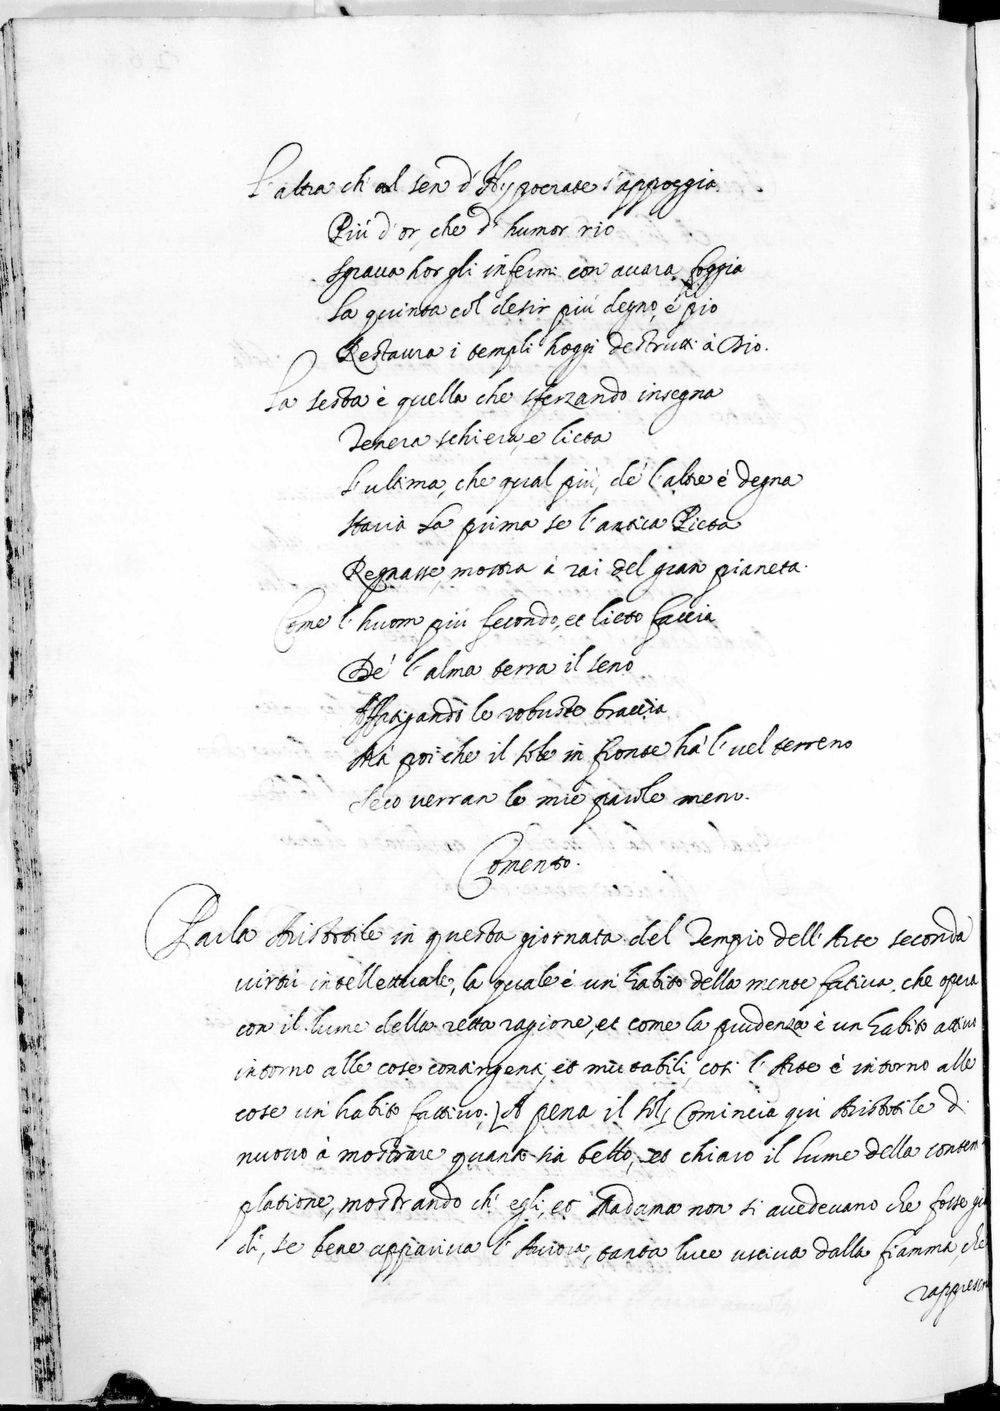 L'altra ch'al sen d'Hypocrate s'appoggia
Più d'or, che d'humor rio
sgraua hor gli infermi con auara foggia
La quinta col desir più degno, e pio
Restaura i templi hoggi destrutti à Dio.
La sesta è quella che sferzando insegna
Tenera schiera, e lieta
L'ultima, che qual più, de l'altre è degna
Staria La prima se l'antica Pieta
Regnasse, mostra à rai del gran pianeta.
Come l'huom più fecondo, et lieto faccia
De' l'alma terra il seno
Affatigando le robuste braccia
Mà poi che il Sole in fronte hà l'uel terreno
Seco verran le mie parole meno.
Comento.
Parla Aristotile in questa giornata del Tempio dell'Arte seconda
virtù intellettuale, la quale è un habito della mente fatiua, che opera
con il lume della retta ragione, et come la prudenza è un habito attiuo
intorno alle cose contingenti, et mutabili, cosi l'Arte è intorno alle
cose un habito fattiuo. [A pena il sol] Comincia qui Aristotile di
nuouo à mostrare quanto hà bello, et chiaro il lume della contem
platione, mostrando ch'egli, et Madama non si auedeuano che fosse gia
dì, se bene appariua l'Aurora, tanta luce usciua dalla fiamma, che
rappresen